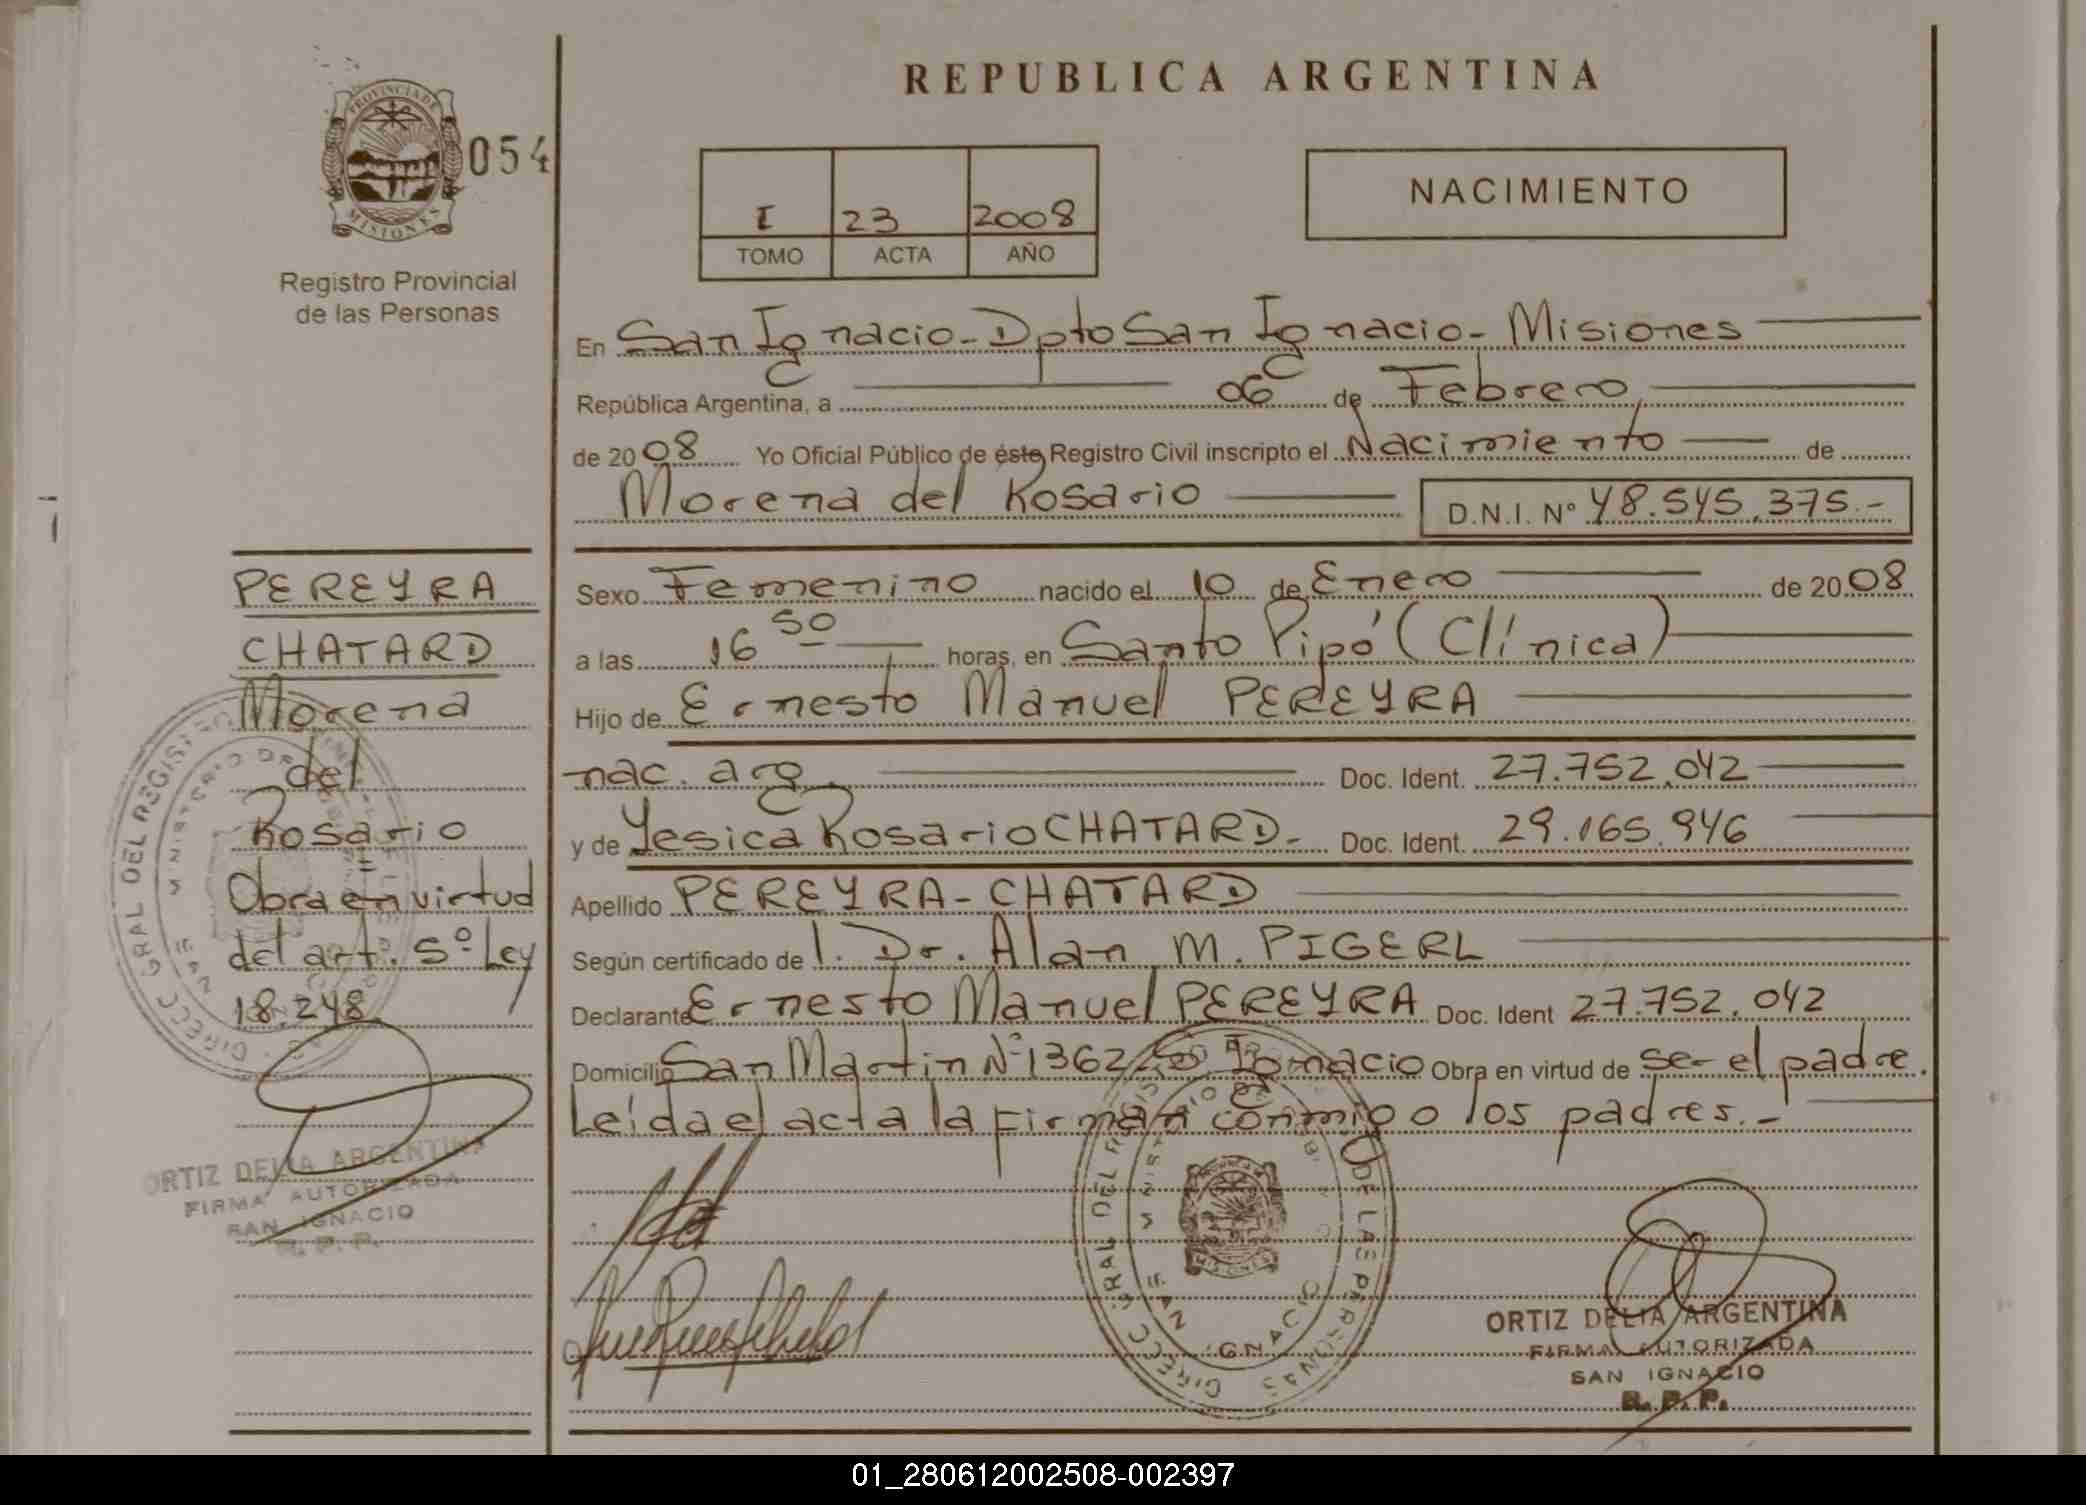 REPUBLICA ARGENTINA
PROVINCIA DE
MISIONES
054
Registro Provincial
de las Personas
I 23 2008
TOMO ACTA AÑO
NACIMIENTO
En San Ignacio - Dpto San Ignacio - Misiones
República Argentina, a 06 de Febrero,
de 2008 Yo Oficial Público de éste Registro Civil inscripto el Nacimiento de
Morena del Rosario D.N.I. Nº 48.545.375.-
Sexo Femenino nacido el 10 de Enero de 2008
a las 16 50 horas, en Santo Pipó (Clínica)
Hijo de Ernesto Manuel PEREYRA
nac. arg. Doc. Ident. 27.752.042
y de Yesica Rosario CHATARD- Doc. Ident. 29.165.946
Apellido PEREYRA - CHATARD
Según certificado de 1. Dr. Alan M. PIGERL
Declarante Ernesto Manuel PEREYRA Doc. Ident 27.752.042
Domicilio San Martin Nº 1362 Ignacio Obra en virtud de ser el padre.
Leída el acta la firman conmigo los padres.-
PEREYRA
CHATARD
Morena
del
Rosario
Obra en virtud
del art. 5º Ley
18.248.
ORTIZ DELIA ARGENTINA
FIRMA AUTORIZADA
SAN IGNACIO
R. P. P.
DIRECC GRAL DEL REGISTRO
MINISTERIO DE
SAN
DIRECC GRAL DEL DE LAS PERSONAS
SAN IGNACIO
MISIONES
ORTIZ DELIA ARGENTINA
FIRMA AUTORIZADA
SAN IGNACIO
R. P. P.
01_280612002508-002397